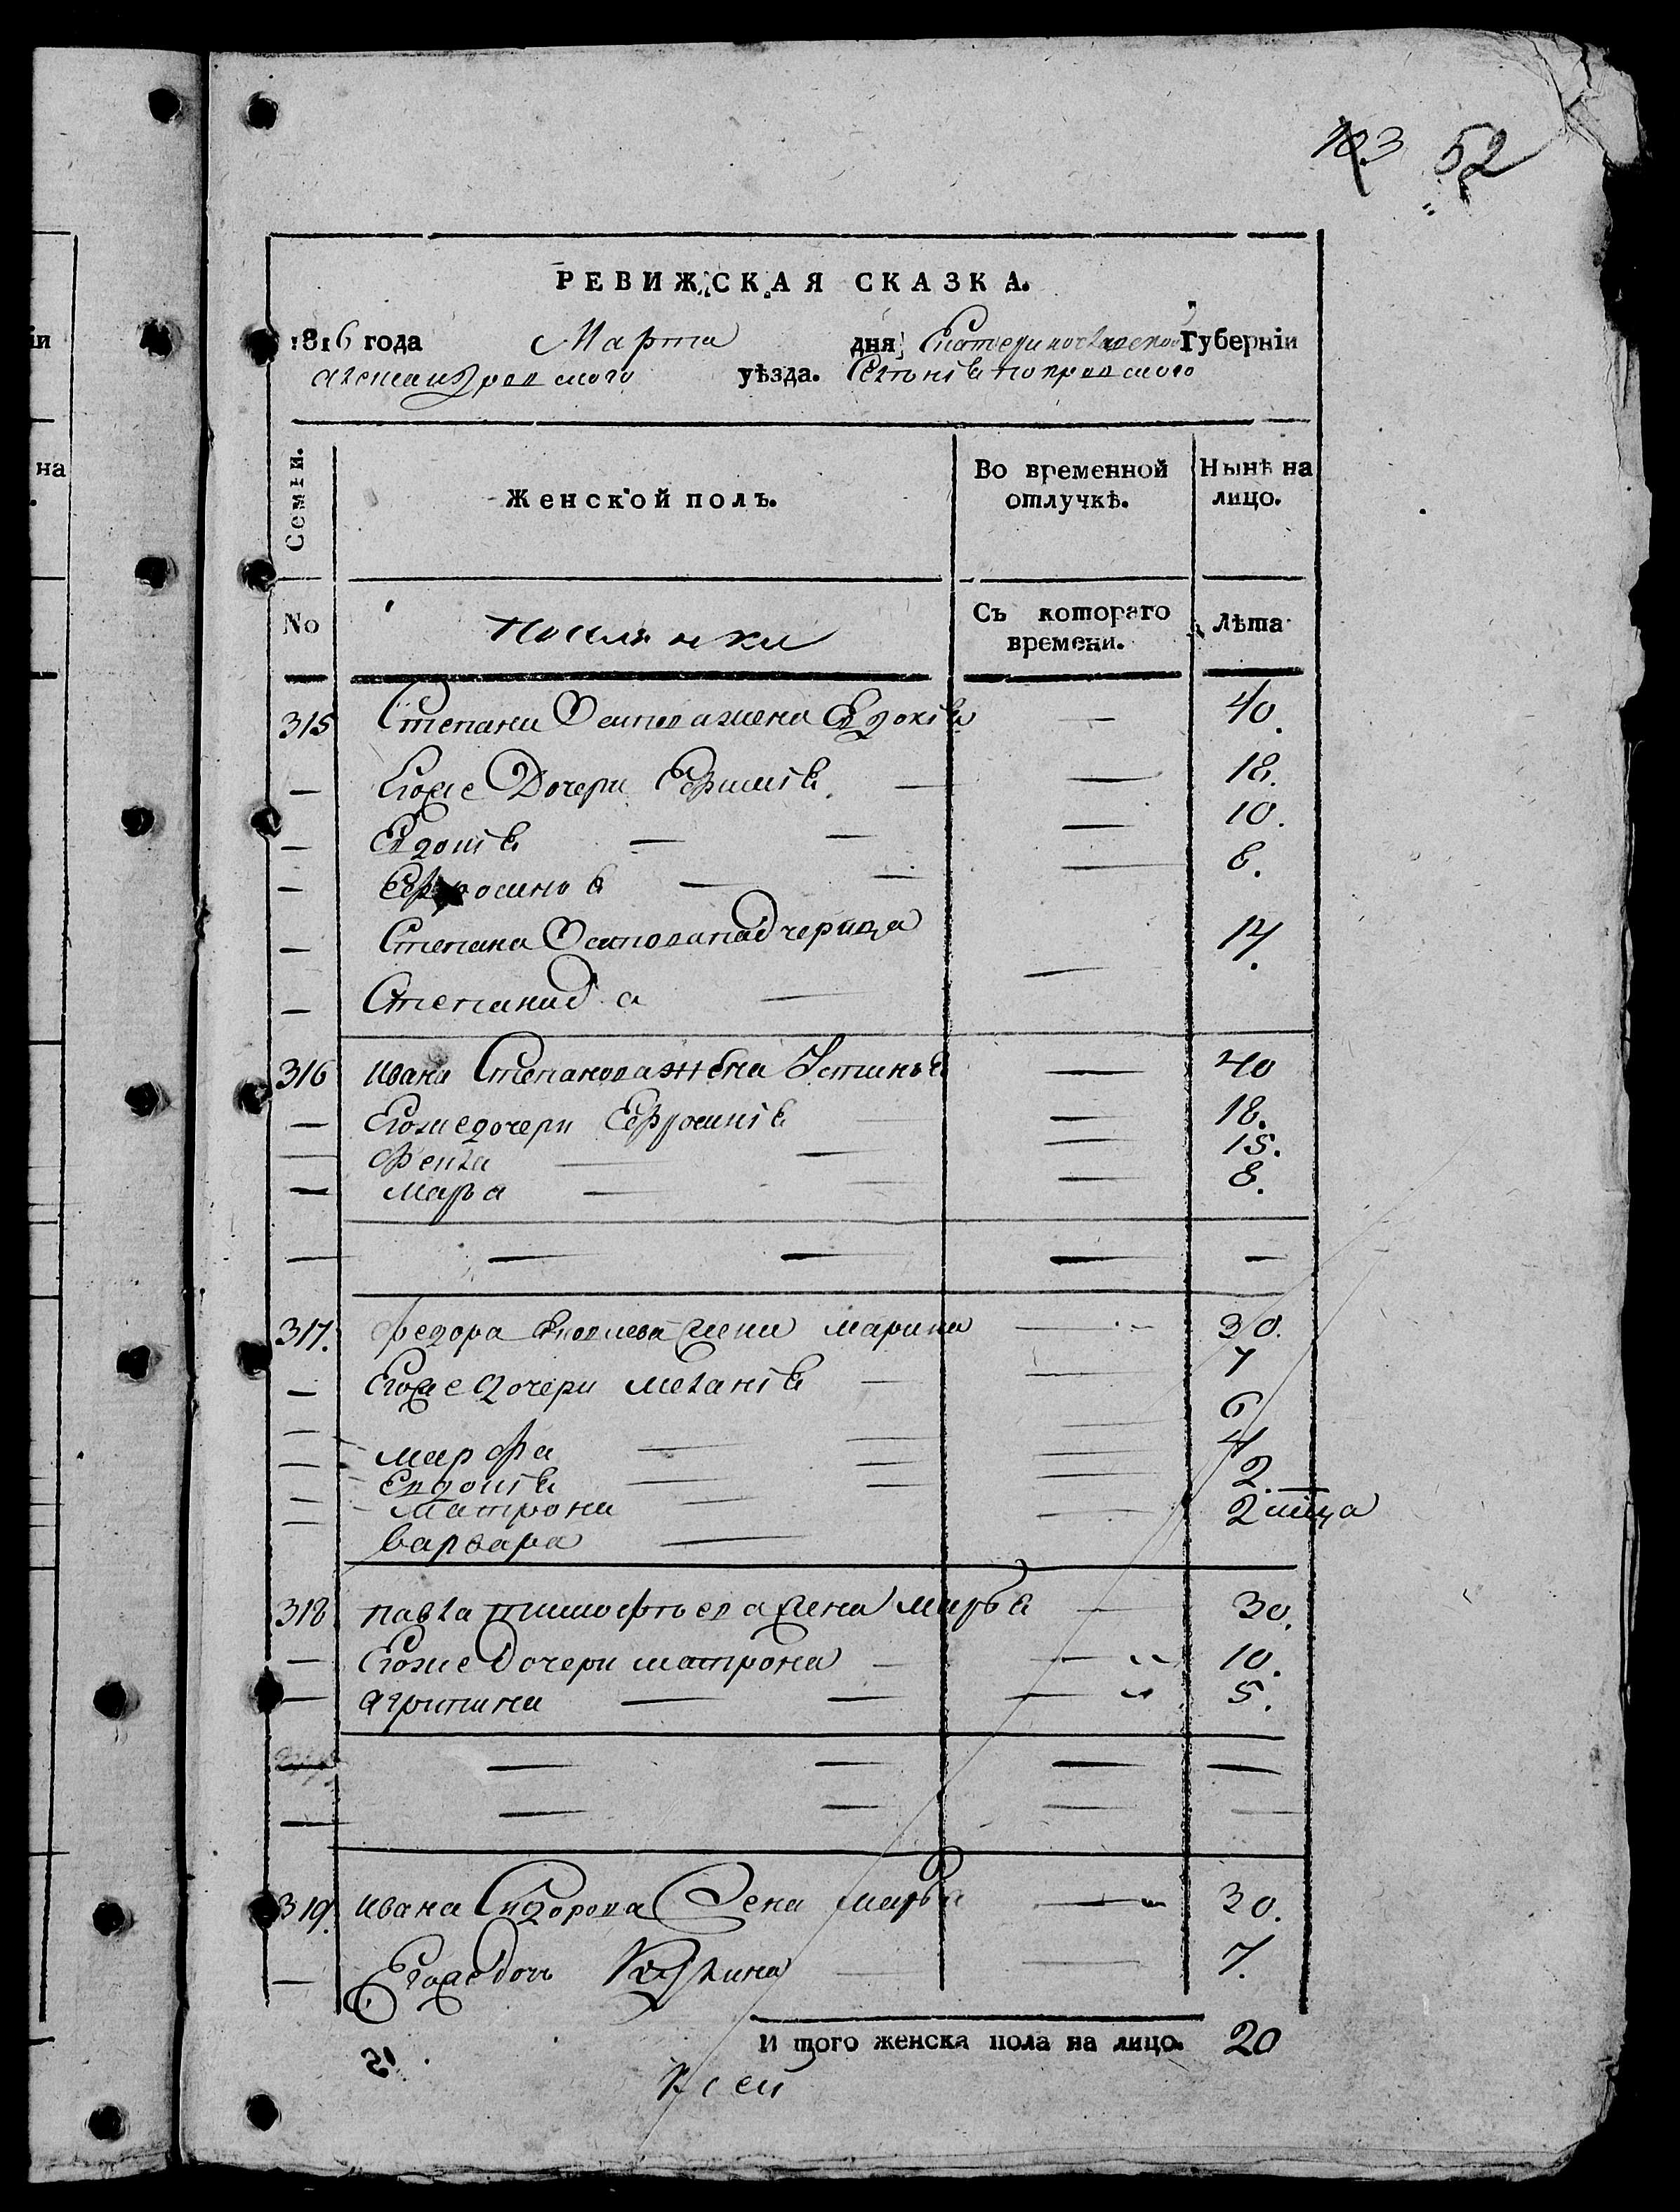 103 52
РЕВИЖСКАЯ СКАЗКА.
1816 года Марта дня Екатеринославской Губерніи
александровского уѣзда. Селенія покровского
Семьи. Женской полъ. Во временной отлучкѣ. Нынѣ на лицо.
No поселянки Съ котораго времени. Лѣта
315 Степана Осипова жена Евдокія — 40.
— Егоже Дочери Ефимія — — 18.
— Евдокія — — — 10.
— Ефросинья — — — 8.
— Степана Осипова падчерица 14.
— Степанида — —
316 Ивана Степанова жена Устинья — 40
— Егоже дочери Ефросинія — — 18.
— Фекла — — — 15.
— марья — — — 8.
— — — — —
317. федора Яковлева жена марина — 30.
— Егоже дочери меланія — — 7
— марфа — — — 6
— Евдокія — — — 4
— матрона — — — 2.
— варвара — — 2 мца
318 павла тимофѣева жена марья — 30.
— Егоже Дочери матрона — — 10.
— агрипина — — — 5.
— — — — —
— — — — —
319. ивана Сидорова жена марья — 30.
— Егоже дочь — — 7.
И того женска пола на лицо. 20
51.